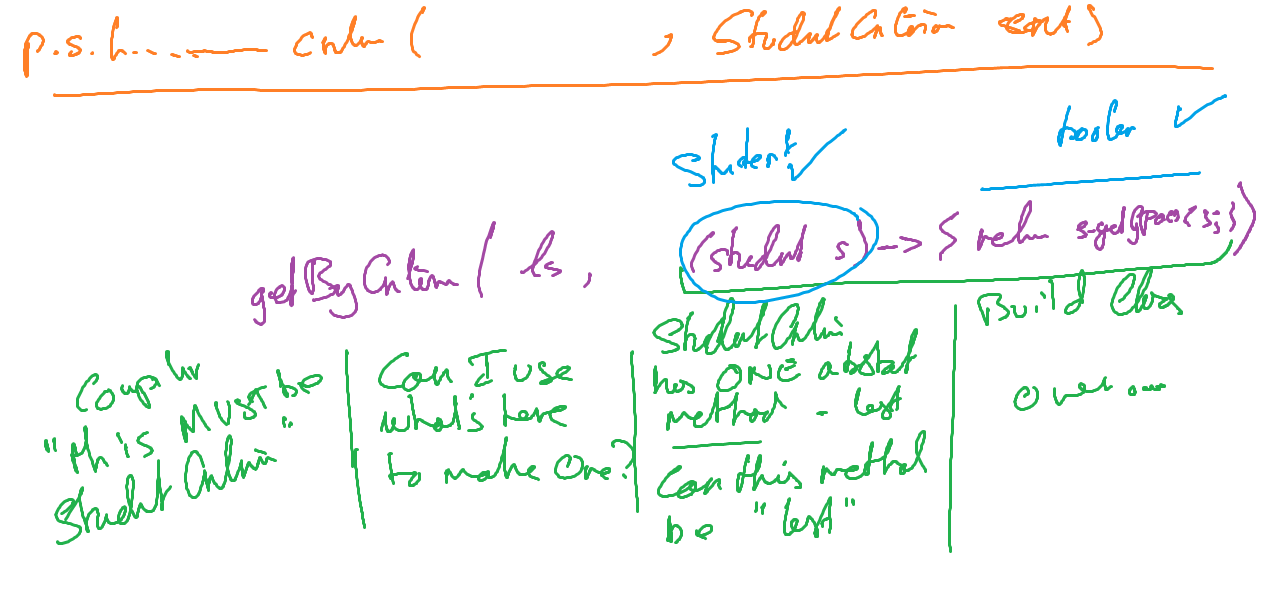 p.s. ( , Student Criterion crit)
Student ✓
boolean ✓
getByCriterion ( ls, (student s) -> { return s.getGPA() < 3; } )
Compiler
"this MUST be
Student Criterion"
Can I use
what's here
to make One?
Student Criterion
has ONE abstract
method - test
Can this method
be "test"
Build Class
over